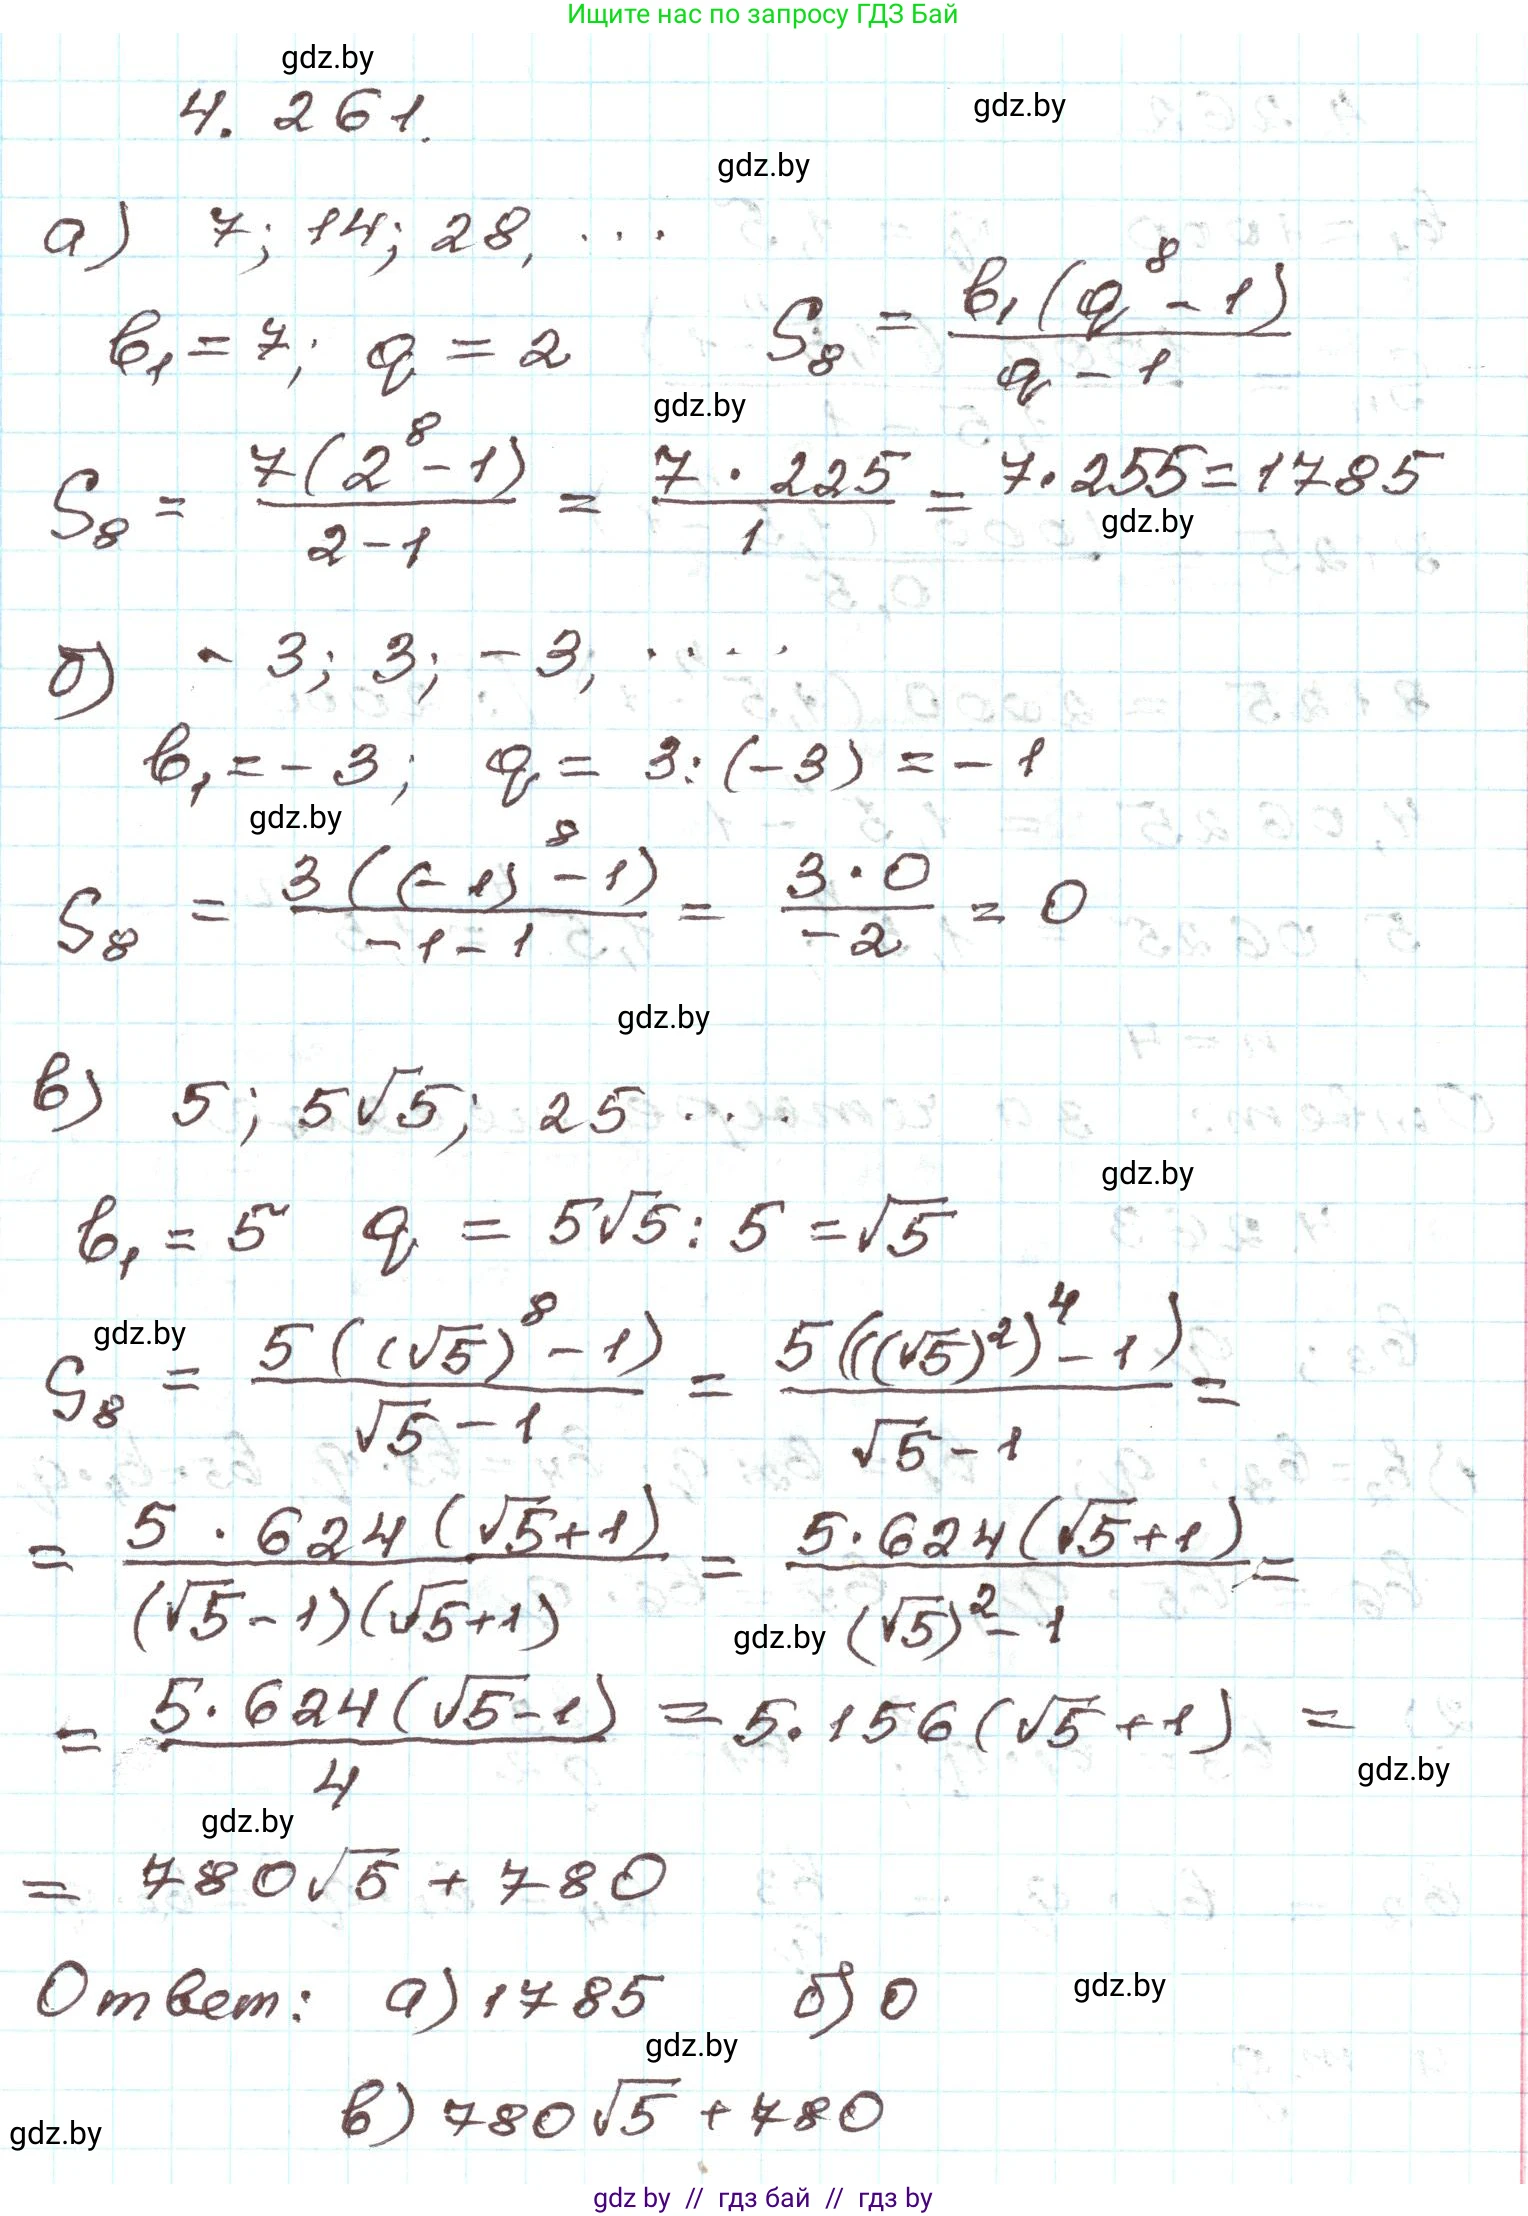 Ищите нас по запросу ГДЗ Бай
gdz.by
4.261.
gdz.by
gdz.by
а) 7; 14; 28, ...
b₁ = 7; q = 2 S₈ = b₁(q⁸ - 1) / q - 1
gdz.by
S₈ = 7(2⁸ - 1) / 2 - 1 = 7 · 225 / 1 = 7·255 = 1785
gdz.by
б) - 3; 3; - 3; ....
b₁ = - 3; q = 3 : (-3) = - 1
gdz.by
S₈ = 3((-1)⁸ - 1) / -1 - 1 = 3 · 0 / -2 = 0
gdz.by
в) 5; 5√5; 25 ...
gdz.by
b₁ = 5 q = 5√5 : 5 = √5
gdz.by
S₈ = 5((√5)⁸ - 1) / √5 - 1 = 5(((√5)²)⁴ - 1) / √5 - 1 =
= 5 · 624(√5+1) / (√5-1)(√5+1) = 5·624(√5+1) / (√5)² - 1 =
gdz.by
= 5·624(√5-1) / 4 = 5·156(√5+1) =
gdz.by
gdz.by
= 780√5 + 780
Ответ: а) 1785 б) 0
gdz.by
gdz.by
в) 780√5 + 780
gdz.by
gdz by // гдз бай // гдз by